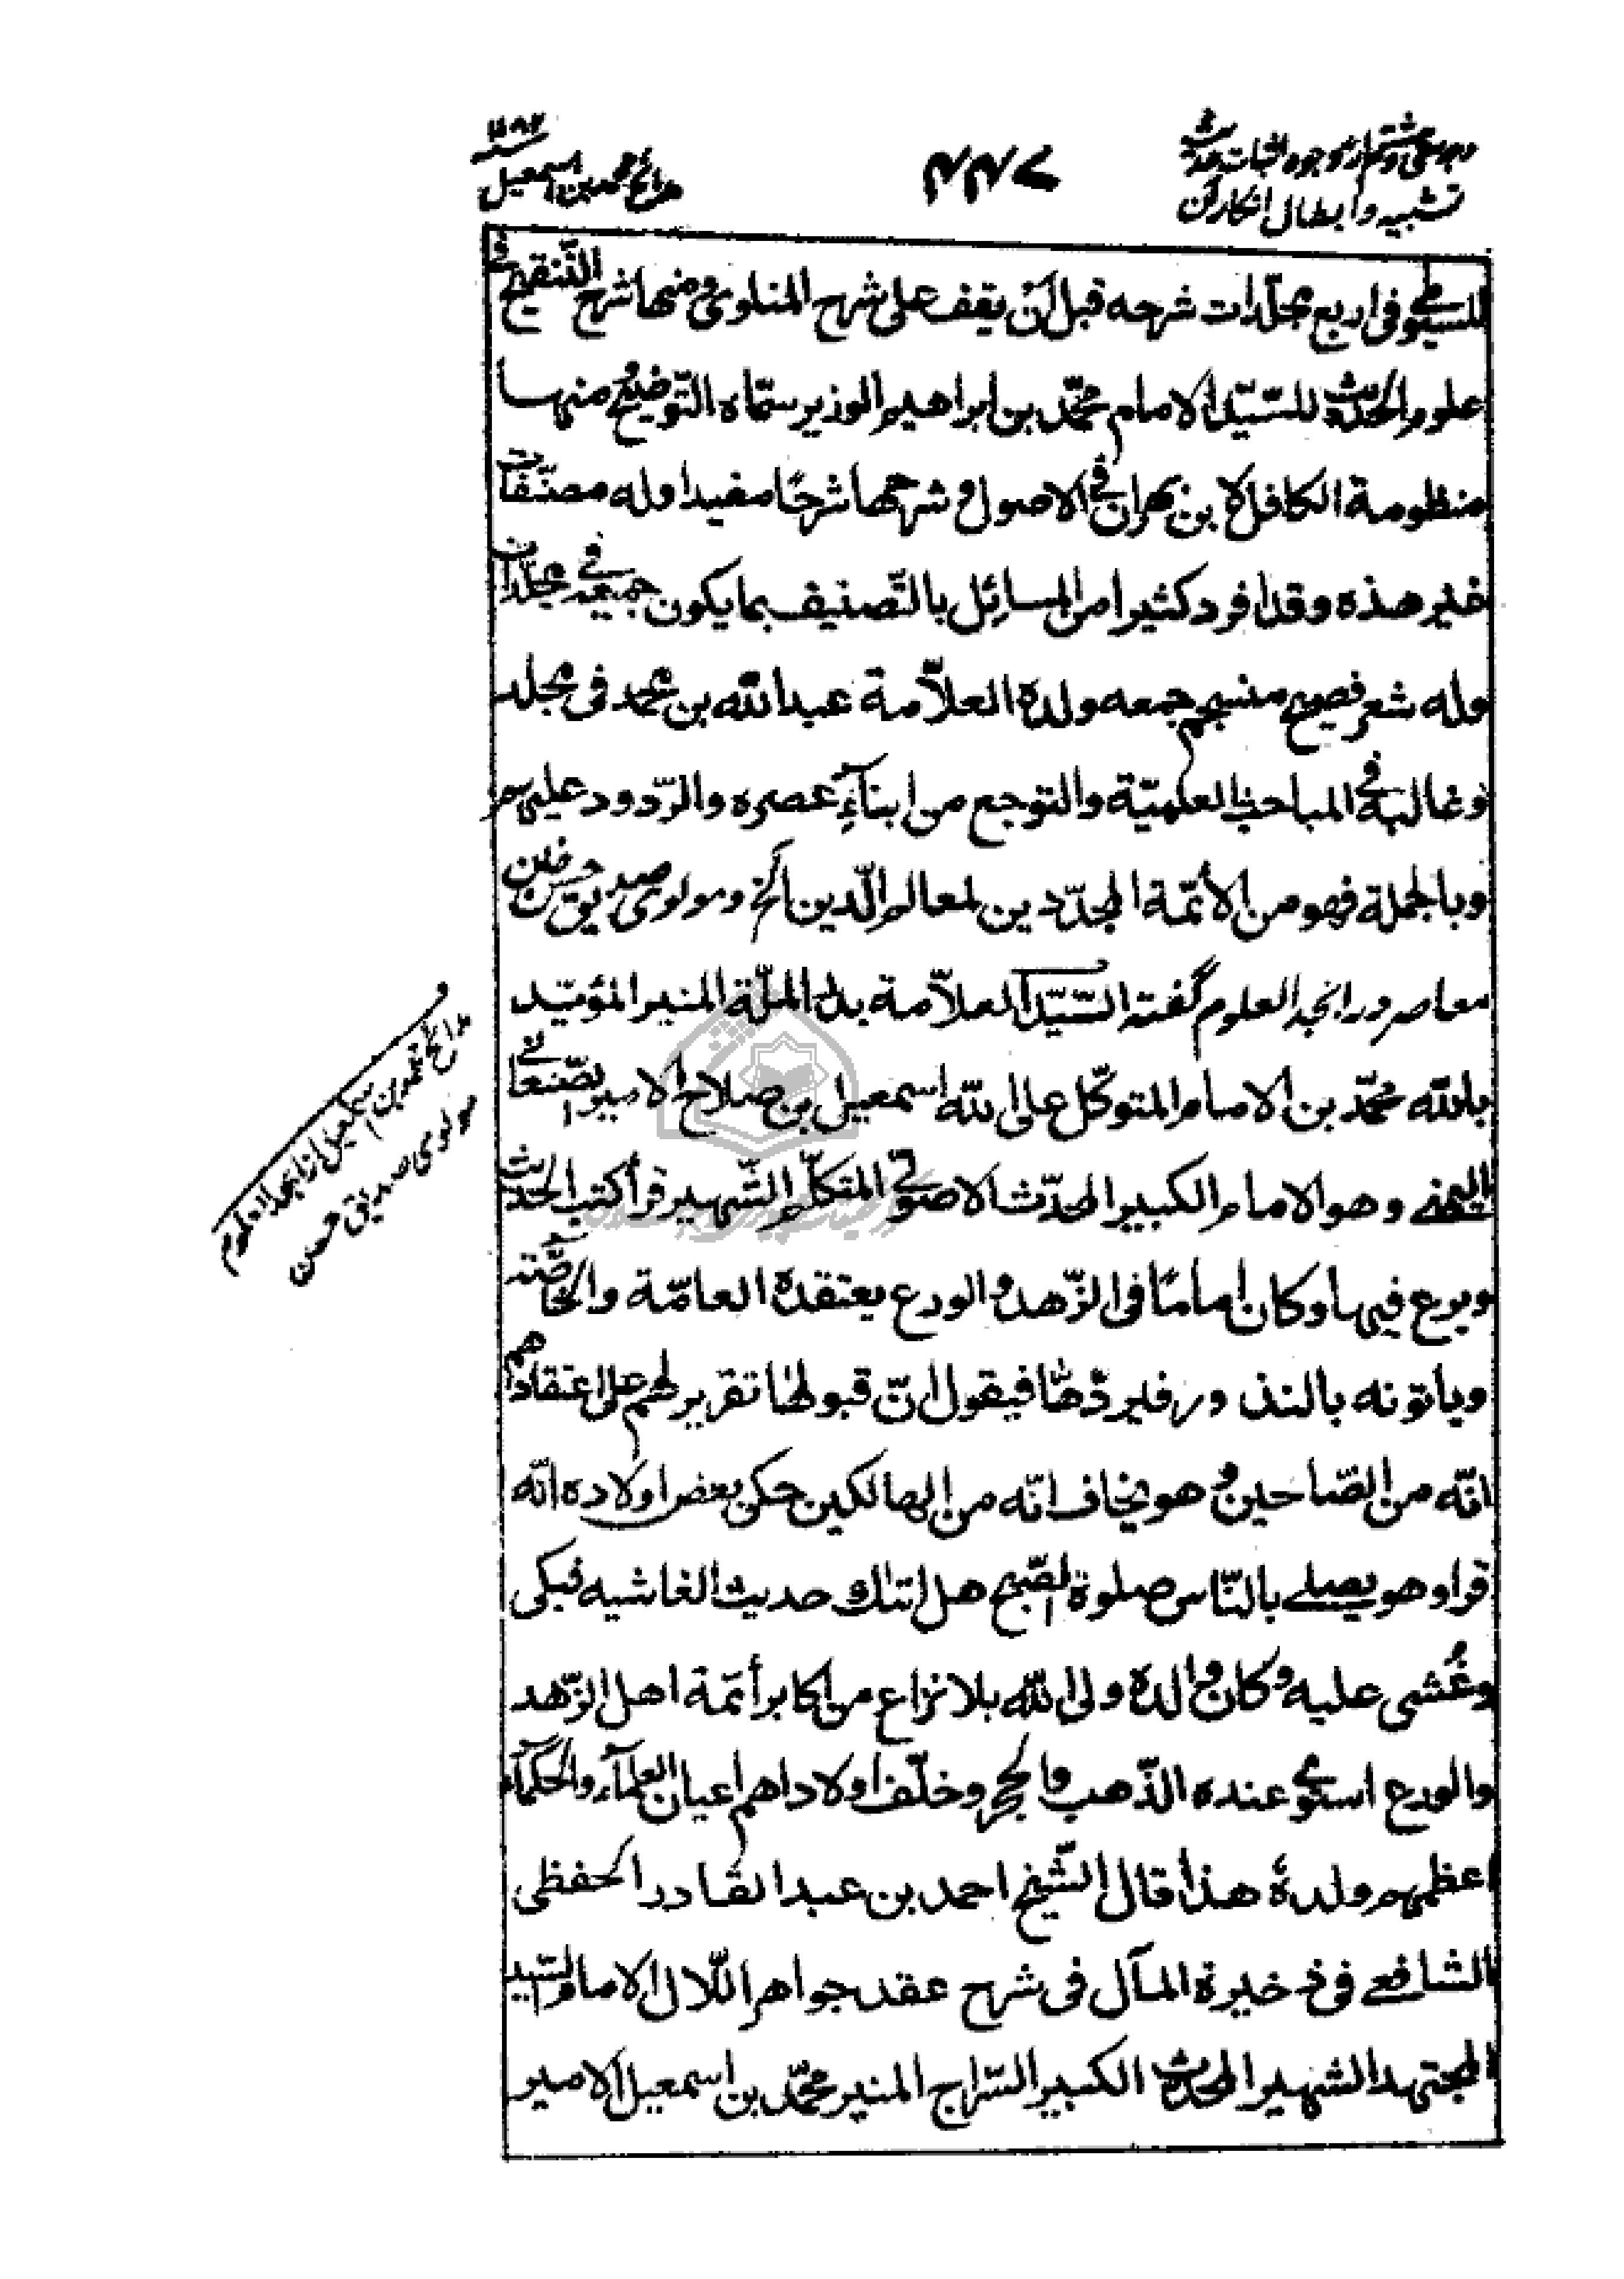 وجه سی و هشتم از وجوه اثبات حدیث
تشبیه و ابطال انکار آن
۴۴۷
مدائح محمد بن اسمعیل
للسیوطی فی اربع مجلّدات شرحه قبل ان یقف علی شرح المناوی و منها شرح التنقیح فی
علوم الحدیث للسّیّد الامام محمّد بن ابراهیم الوزیر سمّاه التّوضیح منها
منظومة الکافل لابن بهران فی الاصول و شرحها شرحًا مفیدا وله مصنّفات
غیر هذه وقد افرد کثیرا من المسائل بالتّصنیف بما یکون جمیعه فی مجلّدات
وله شعر فصیح منسجم جمعه ولده العلّامة عبد الله بن محمد فی مجلد
وغالبه فی المباحث العلمیّة والتوجع من ابنآءِ عصره والرّدود علیهم
وبالجملة فهو من الأئمّة المجدّدین لمعالم الدّین الخ و مولوی صدیق حسن خان
معاصر در ابجد العلوم گفته السّیّد العلّامة بدر الملّة المنیر المؤیّد
بالله محمّد بن الامام المتوکّل علی الله اسمعیل بن صلاح الامیر الصّنعانی
الیمنی وهو الامام الکبیر المحدّث الاصولی المتکلّم الشّهیر قرأ کتب الحدیث
وبرع فیها وکان إمامًا فی الزّهد والورع یعتقده العامّة والخاصّة
ویأتونه بالنذور فیردّها فیقول انّ قبولها تقریر لهم علی اعتقادهم
انّه من الصّالحین وهو یخاف انّه من الهالکین حکی بعض اولاده انّه
قرا وهو یصلی بالنّاس صلوة الصّبح هل اتیٰک حدیث الغاشیه فبکی
وغُشی علیه وکان والده ولی الله بلا نزاع من اکابر أئمّة اهل الزّهد
والورع استوی عنده الذّهب والحجر وخلّف اولادا هم اعیان العلمآء والحکمآء
اعظمهم ولده هذا قال الشّیخ احمد بن عبد القادر الحفظی
الشافعی فی ذخیرة المآل فی شرح عقد جواهر اللّال الامام السّید
المجتهد الشهیر المحدث الکبیر السّراج المنیر محمّد بن اسمعیل الامیر
مدائح محمد بن اسمعیل از ابجد العلوم
مولوی صدیق حسن